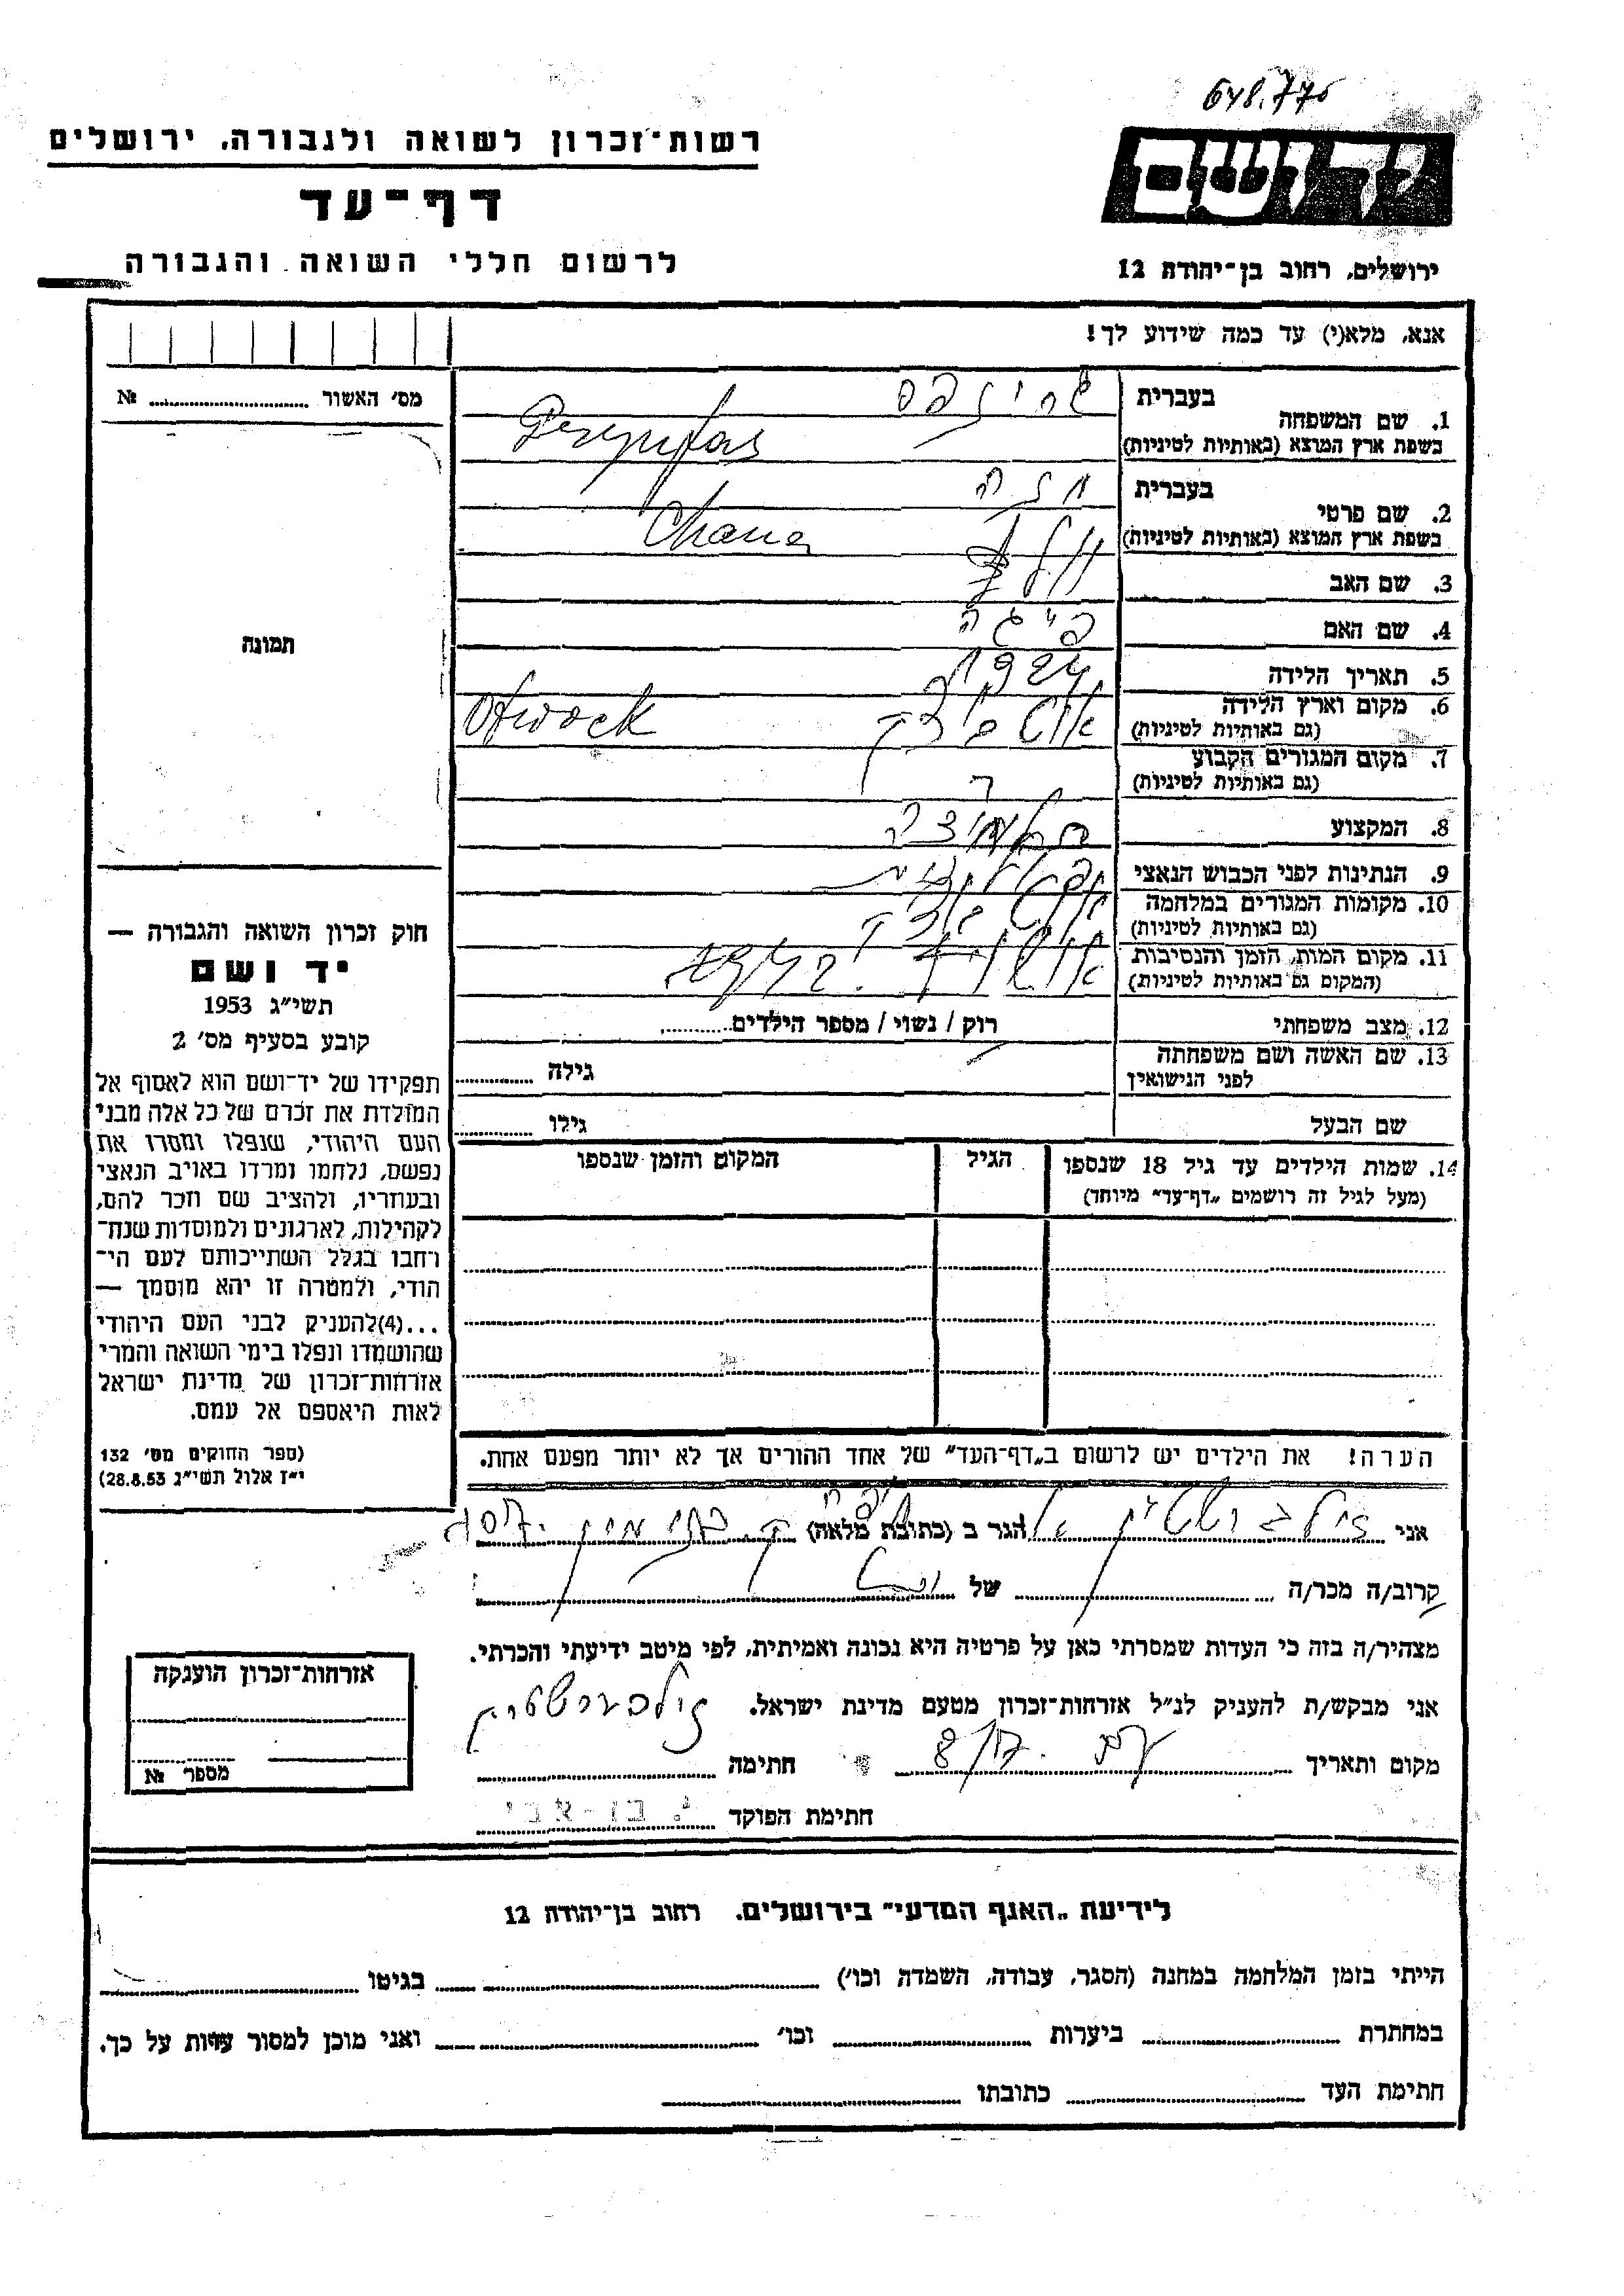 648.776
רשות-זכרון לשואה ולגבורה, ירושלים
יד ושם
דף-עד
לרשום חללי השואה והגבורה
ירושלים, רחוב בן-יהודה 12
אנא, מלא(י) עד כמה שידוע לך!
מס׳ האשור ... №
תמונה
חוק זכרון השואה והגבורה —
יד ושם
תשי״ג 1953
קובע בסעיף מס׳ 2
תפקידו של יד-ושם הוא לאסוף אל
המולדת את זכרם של כל אלה מבני
העם היהודי, שנפלו ומסרו את
נפשם, נלחמו ומרדו באויב הנאצי
ובעוזריו, ולהציב שם וזכר להם,
לקהילות, לארגונים ולמוסדות שנח-
רחבו בגלל השתייכותם לעם הי-
הודי, ולמטרה זו יהא מוסמך —
...(4)להעניק לבני העם היהודי
שהושמדו ונפלו בימי השואה והמרי
אזרחות-זכרון של מדינת ישראל
לאות היאספם אל עמם.
(ספר החוקים מס׳ 132
י״ז אלול תשי״ג 28.8.53)
1. שם המשפחה בעברית
בשפת ארץ המוצא (באותיות לטיניות)
2. שם פרטי בעברית חנה
בשפת ארץ המוצא (באותיות לטיניות) Chana
3. שם האב
4. שם האם פייגה
5. תאריך הלידה 1924
6. מקום וארץ הלידה
(גם באותיות לטיניות) אוטבוצק Otwock
7. מקום המגורים הקבוע
(גם באותיות לטיניות)
8. המקצוע
9. הנתינות לפני הכבוש הנאצי
10. מקומות המגורים במלחמה
(גם באותיות לטיניות)
11. מקום המות, הזמן והנסיבות
(המקום גם באותיות לטיניות)
12. מצב משפחתי רוק / נשוי / מספר הילדים
13. שם האשה ושם משפחתה
לפני הנישואין גילה
שם הבעל גילו
14. שמות הילדים עד גיל 18 שנספו הגיל המקום והזמן שנספו
(מעל לגיל זה רושמים „דף-עד״ מיוחד)
הערה! את הילדים יש לרשום ב„דף-העד״ של אחד ההורים אך לא יותר מפעם אחת.
אני זילברשטיין הגר ב (כתובת מלאה)
קרוב/ה מכר/ה של
מצהיר/ה בזה כי העדות שמסרתי כאן על פרטיה היא נכונה ואמיתית, לפי מיטב ידיעתי והכרתי.
אני מבקש/ת להעניק לנ״ל אזרחות-זכרון מטעם מדינת ישראל.
מקום ותאריך חתימה זילברשטיין
חתימת הפוקד י. בן-אבי
אזרחות-זכרון הוענקה
מספר №
לידיעת „האגף המדעי״ בירושלים, רחוב בן-יהודה 12
הייתי בזמן המלחמה במחנה (הסגר, עבודה, השמדה וכו׳) בגיטו
במחתרת ביערות וכו׳ ואני מוכן למסור עדות על כך.
חתימת העד כתובתו